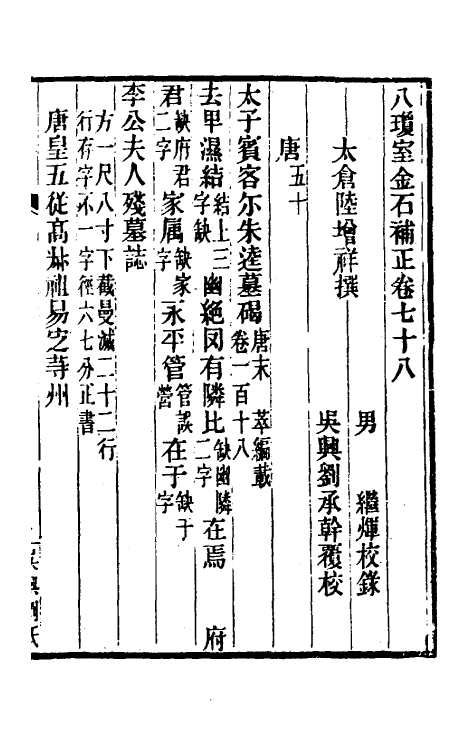 八瓊室金石補正卷七十八
太倉陸增祥撰
男　繼煇校錄
吳興劉承幹覆校
唐五十
太子賓客尒朱逵墓碣唐末　萃編載卷一百十八
去卑濕結結上三字缺　幽絶罔有隣比缺幽隣二字　在焉　府
君缺府君二字　家属缺家字　永平管管誤營　在于缺于字
李公夫人殘墓誌
方一尺八寸下截曼滅二十二行
行存字不一字徑六七分正書
唐皇五從髙
祖易定等州
吳興劉氏